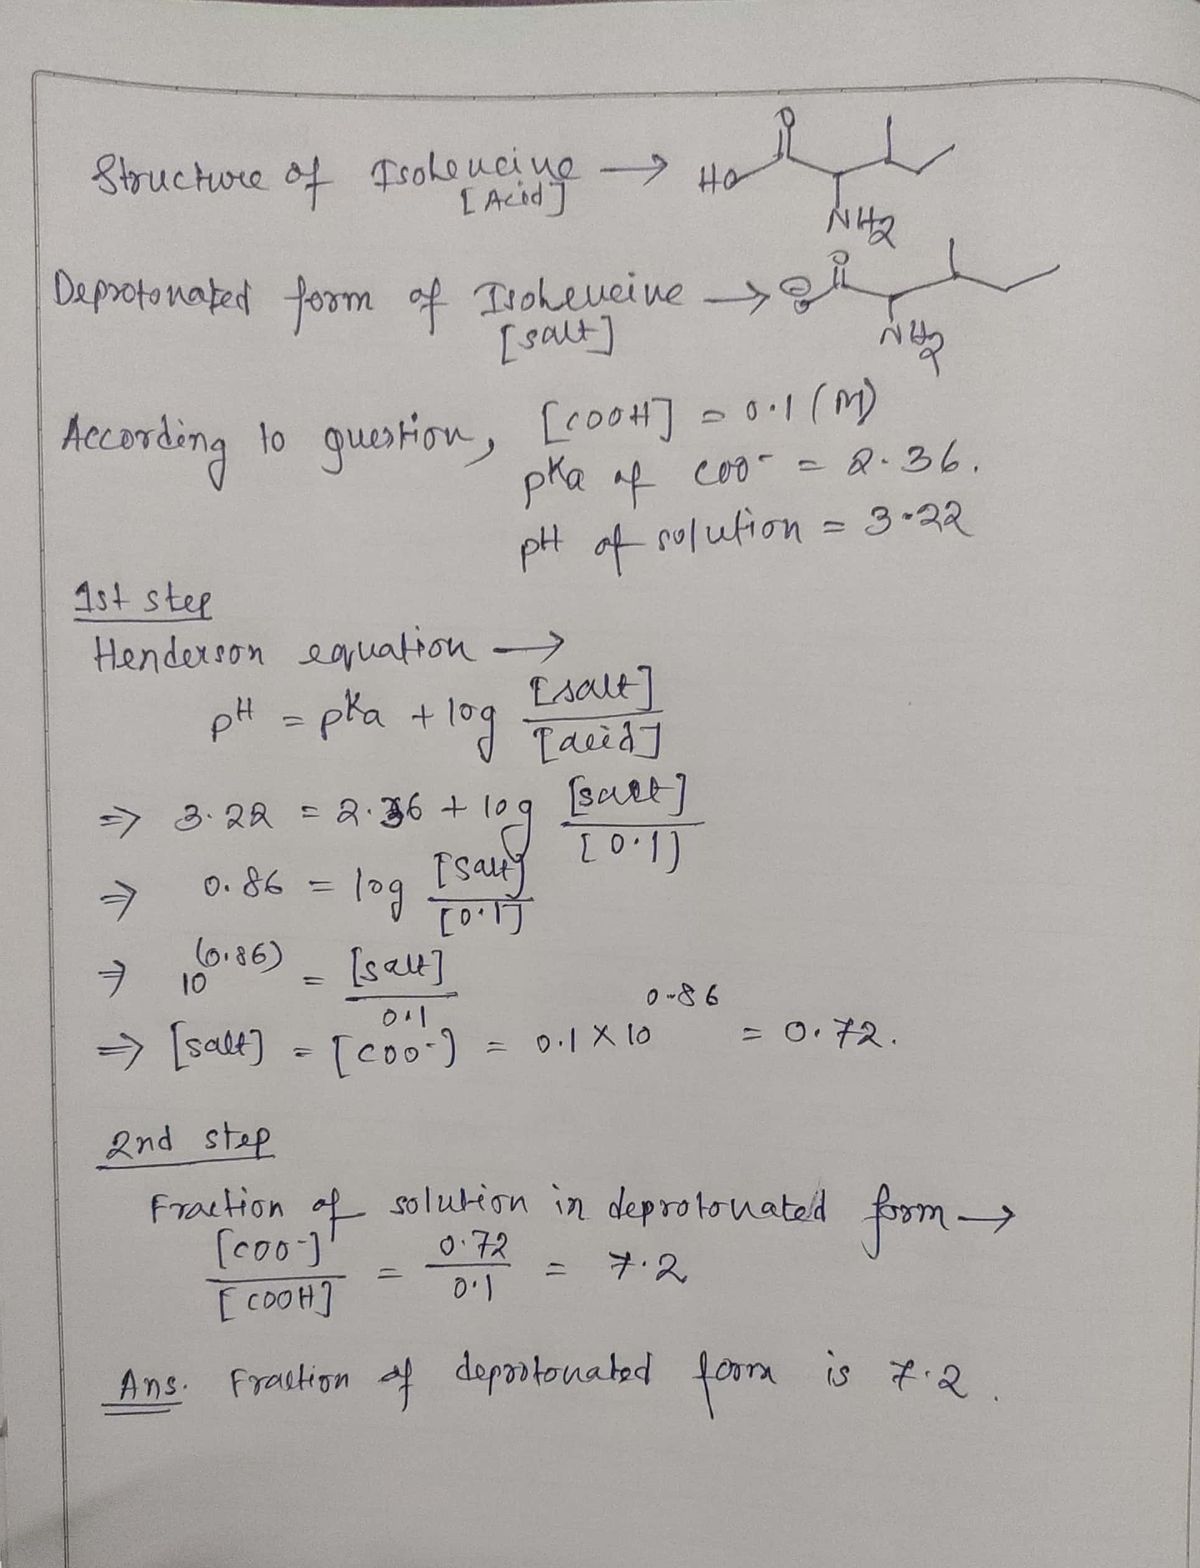 Structure of Isoleucine → HO O NH2
[Acid]
Deprotonated form of Isoleucine → ⊖O O NH2
[salt]
According to question, [COOH] = 0.1 (M)
pKa of COO⁻ = 2.36.
pH of solution = 3.22
1st step
Henderson equation →
pH = pKa + log [salt]/[acid]
⇒ 3.22 = 2.36 + log [salt]/[0.1]
⇒ 0.86 = log [salt]/[0.1]
⇒ 10^(0.86) = [salt]/0.1
⇒ [salt] = [COO⁻] = 0.1 × 10^0.86 = 0.72.
2nd step
Fraction of solution in deprotonated form →
[COO⁻]/[COOH] = 0.72/0.1 = 7.2
Ans. Fraction of deprotonated form is 7.2.